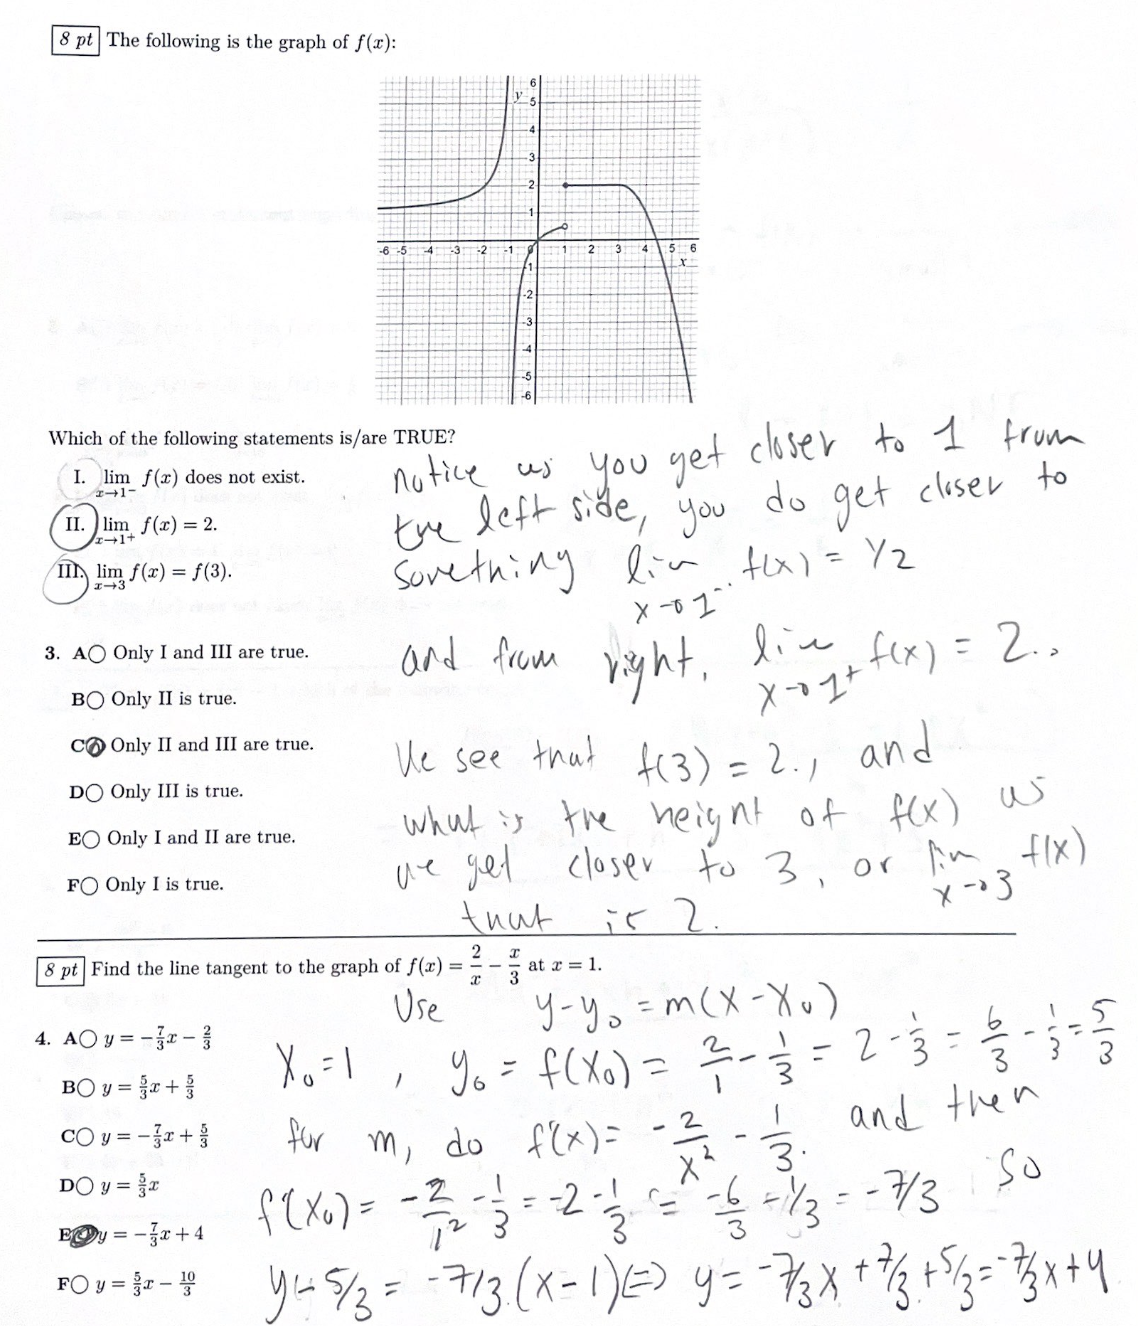 8 pt The following is the graph of f(x):
6
y 5
4
3
2
1
-6 -5 -4 -3 -2 -1 0 1 2 3 4 5 6
x
-1
-2
-3
-4
-5
-6
Which of the following statements is/are TRUE?
I. lim x→1- f(x) does not exist.
II. lim x→1+ f(x) = 2.
III. lim x→3 f(x) = f(3).
notice as you get closer to 1 from
the left side, you do get closer to
something lim x→1- f(x) = 1/2
and from right, lim x→1+ f(x) = 2.
We see that f(3) = 2., and
what is the height of f(x) as
we get closer to 3, or lim x→3 f(x)
that is 2.
3. A○ Only I and III are true.
B○ Only II is true.
C○ Only II and III are true.
D○ Only III is true.
E○ Only I and II are true.
F○ Only I is true.
8 pt Find the line tangent to the graph of f(x) = 2/x − x/3 at x = 1.
4. A○ y = −7/3x − 2/3
B○ y = 5/3x + 5/3
C○ y = −7/3x + 5/3
D○ y = 5/3x
E○ y = −7/3x + 4
F○ y = 5/3x − 10/3
Use y-y₀ = m(x-x₀)
x₀=1, y₀ = f(x₀) = 2/1 - 1/3 = 2 - 1/3 = 6/3 - 1/3 = 5/3
for m, do f'(x)= -2/x² - 1/3. and then
f'(x₀) = -2/1² - 1/3 = -2 - 1/3 = -6/3 - 1/3 = -7/3 so
y - 5/3 = -7/3 (x-1) ⇒ y = -7/3x + 7/3 + 5/3 = -7/3x + 4